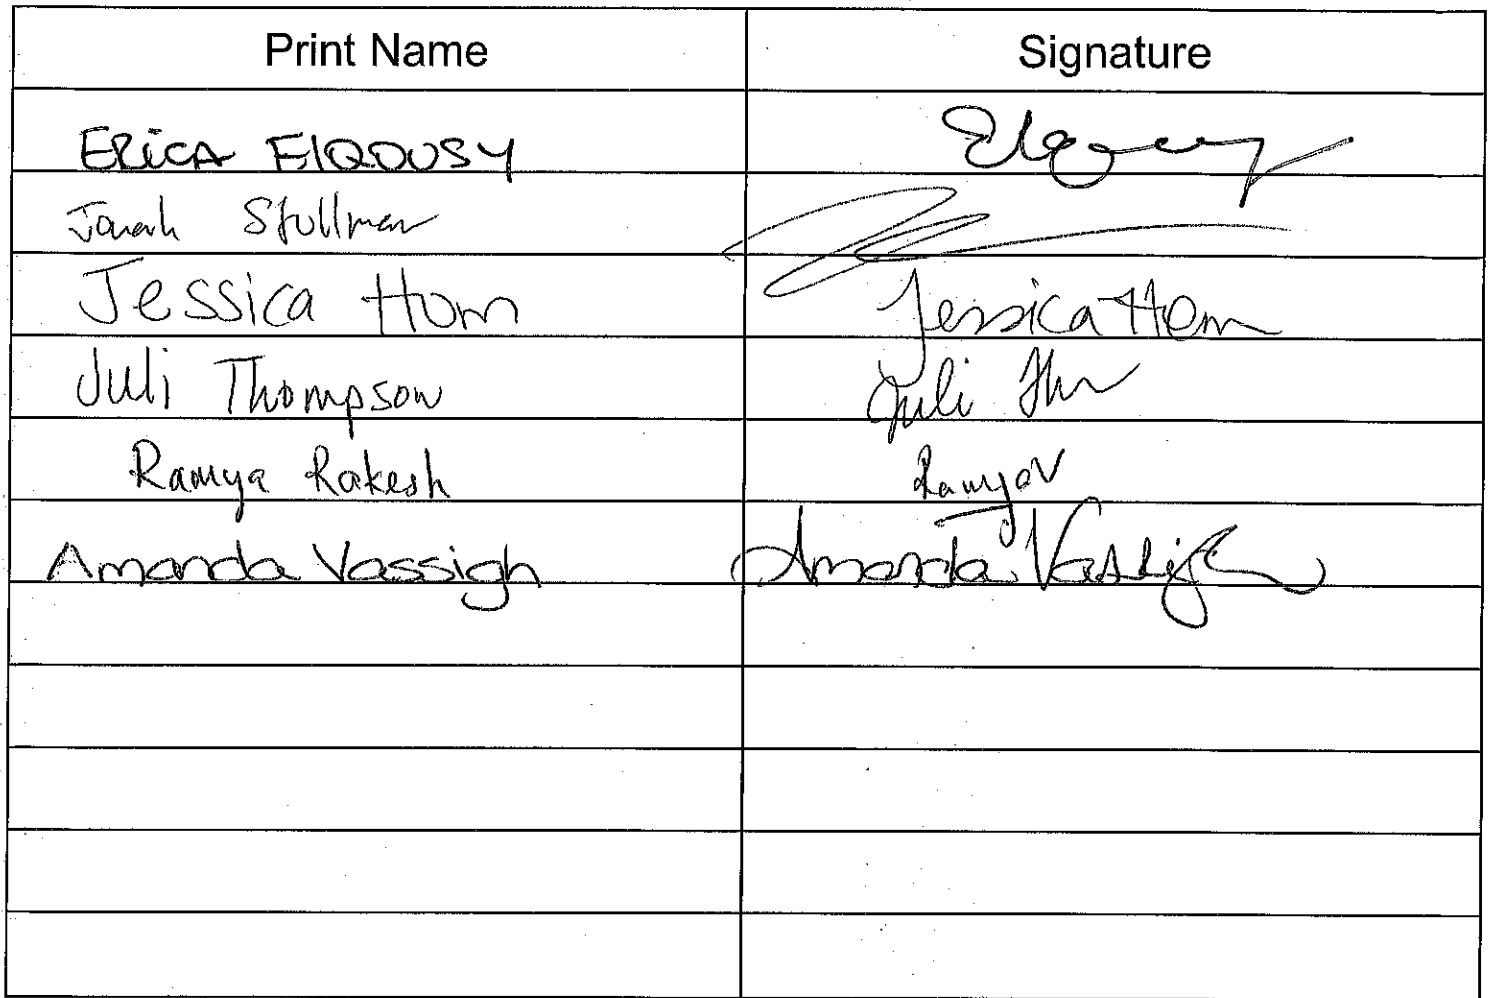 Print Name Signature
ERiCA ElQOUSY Elqousy
Jonah Stullman
Jessica Hom Jessica Hom
Juli Thompson Juli
Ramya Rakesh Ramya
Amanda Vassigh Amanda Vassigh